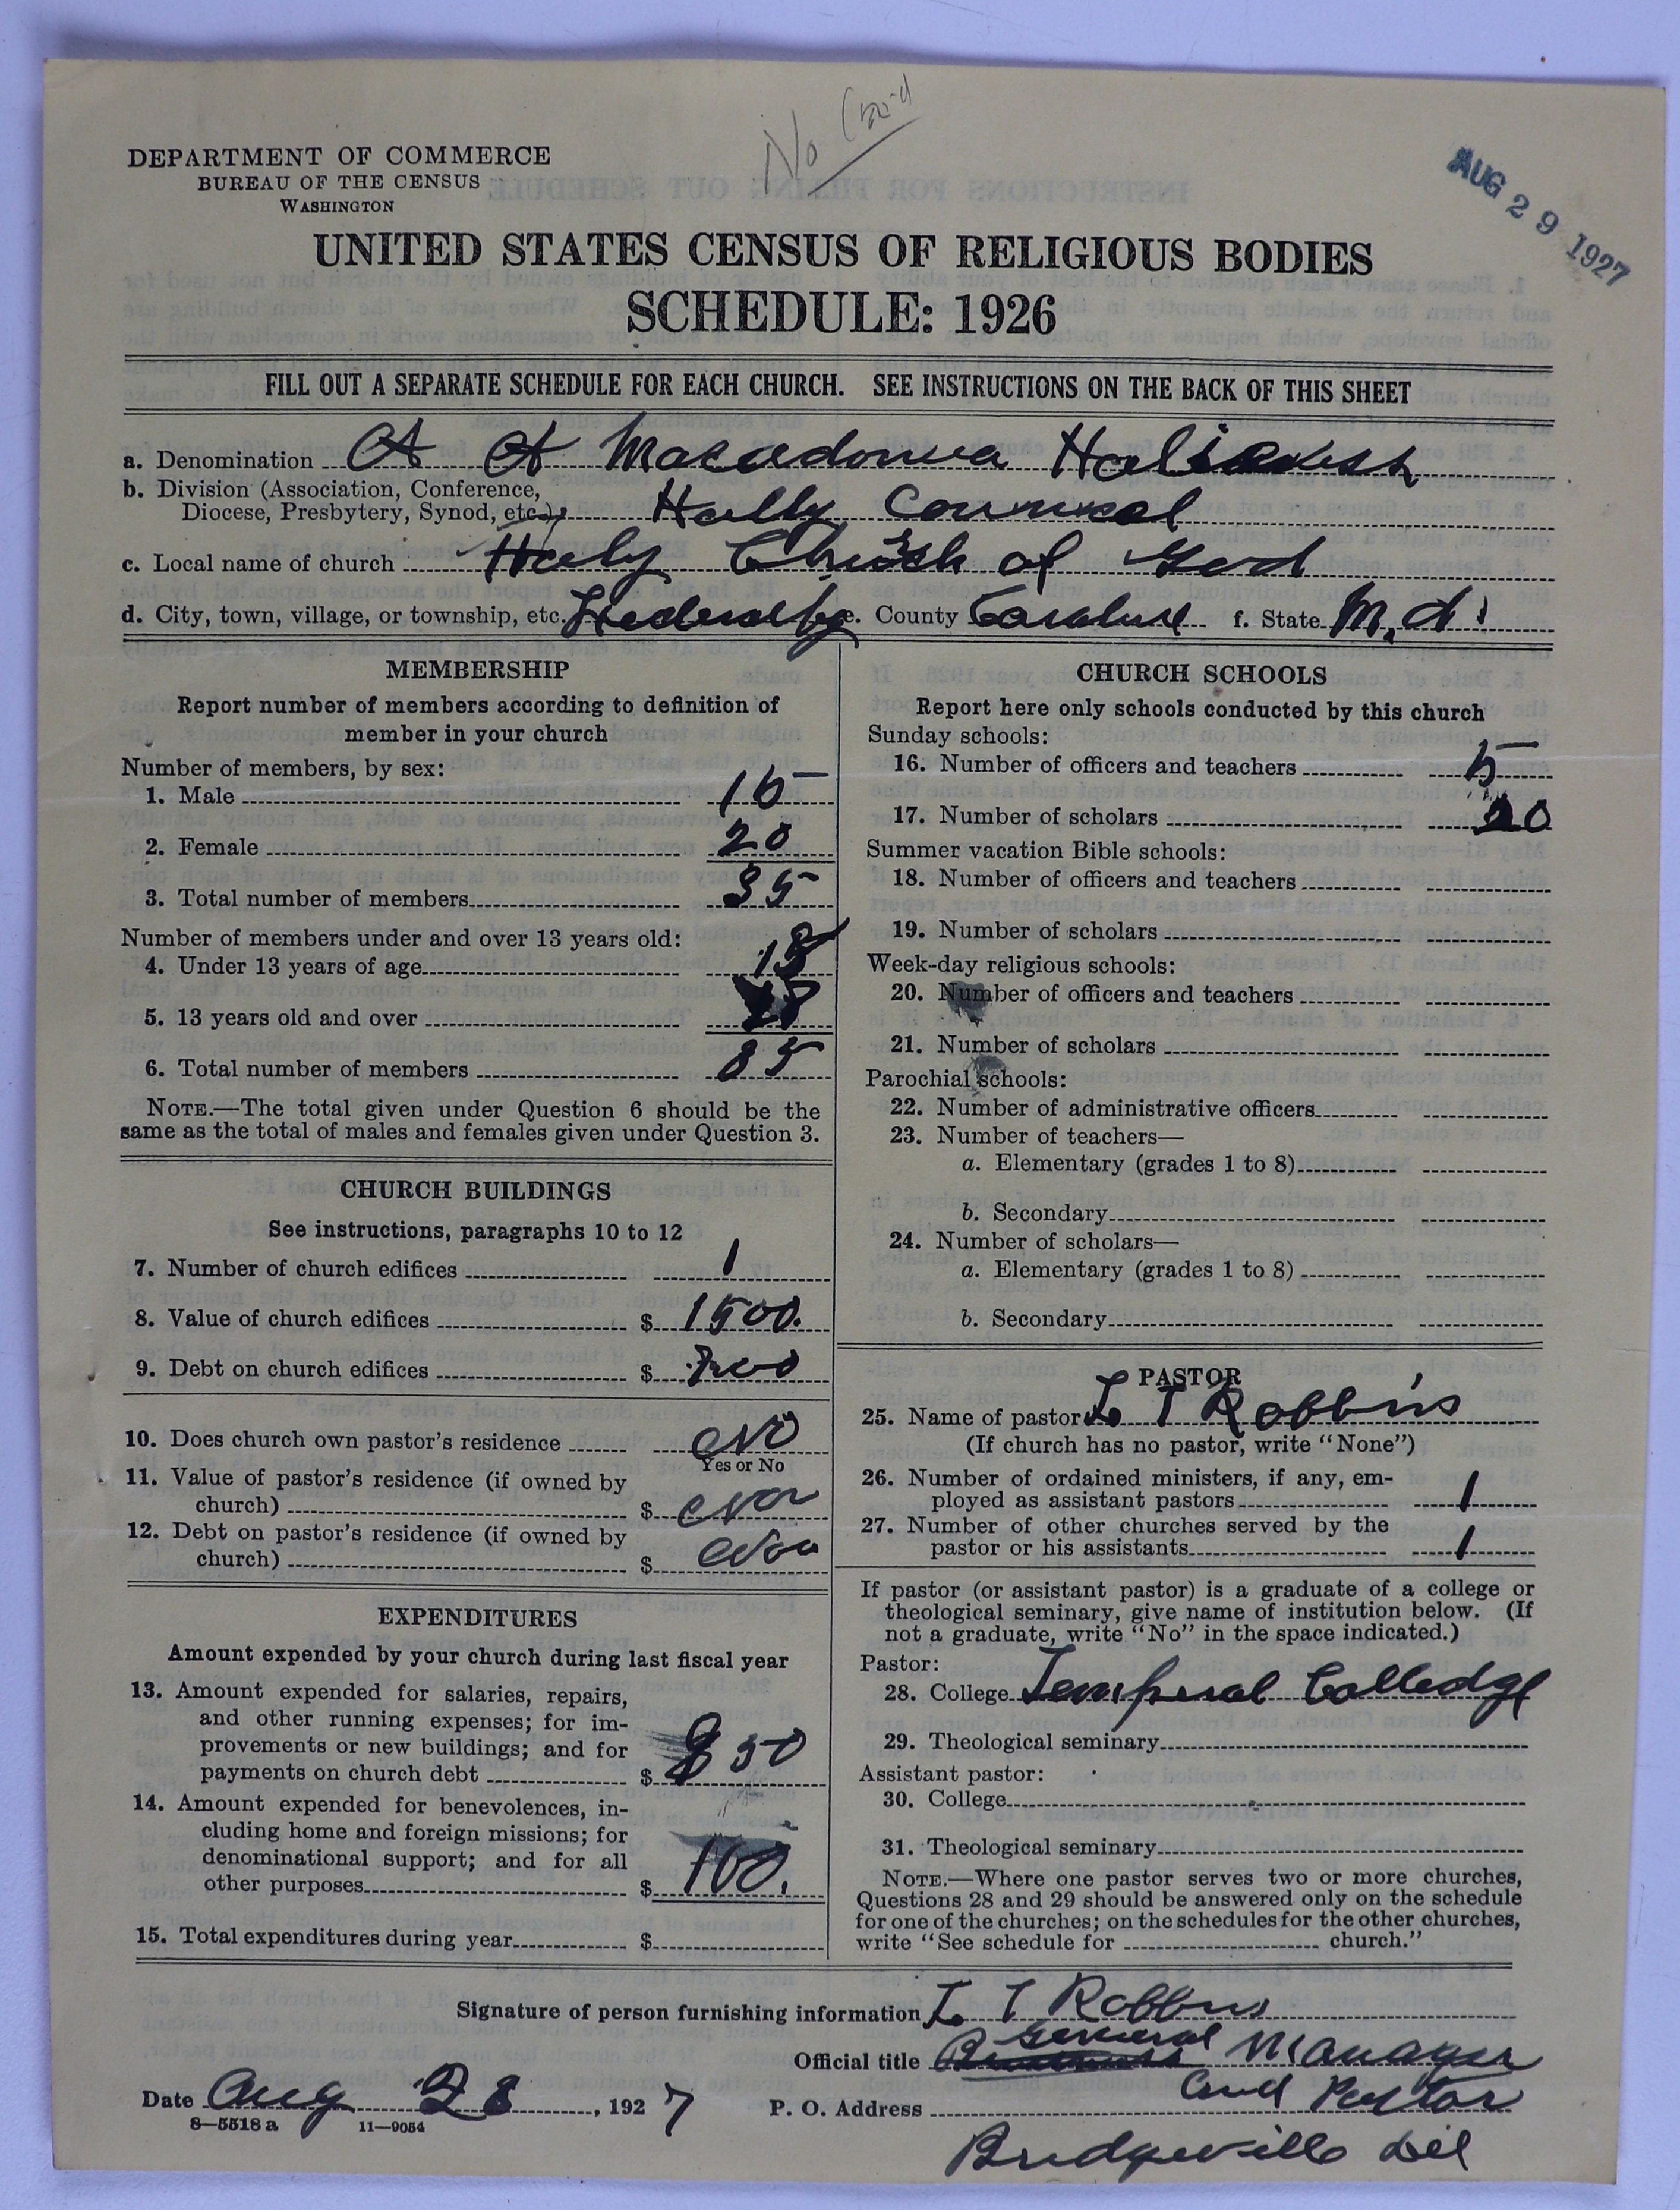 No Card
AUG 29 1927
DEPARTMENT OF COMMERCE
BUREAU OF THE CENSUS
WASHINGTON
UNITED STATES CENSUS OF RELIGIOUS BODIES
SCHEDULE: 1926
FILL OUT A SEPARATE SCHEDULE FOR EACH CHURCH. SEE INSTRUCTIONS ON THE BACK OF THIS SHEET
a. Denomination A A Macedonia
b. Division (Association, Conference,
Diocese, Presbytery, Synod, etc.) Holly Counsel
c. Local name of church Holy Church of God
d. City, town, village, or township, etc. e. County f. State M.d.
MEMBERSHIP
Report number of members according to definition of
member in your church
Number of members, by sex:
1. Male 15
2. Female 20
3. Total number of members 35
Number of members under and over 13 years old:
4. Under 13 years of age
5. 13 years old and over
6. Total number of members 35
NOTE.—The total given under Question 6 should be the
same as the total of males and females given under Question 3.
CHURCH BUILDINGS
See instructions, paragraphs 10 to 12
7. Number of church edifices 1
8. Value of church edifices $ 1500.
9. Debt on church edifices $
10. Does church own pastor's residence No
Yes or No
11. Value of pastor's residence (if owned by
church) $
12. Debt on pastor's residence (if owned by
church) $
EXPENDITURES
Amount expended by your church during last fiscal year
13. Amount expended for salaries, repairs,
and other running expenses; for im-
provements or new buildings; and for
payments on church debt $
14. Amount expended for benevolences, in-
cluding home and foreign missions; for
denominational support; and for all
other purposes $ 100.
15. Total expenditures during year $
CHURCH SCHOOLS
Report here only schools conducted by this church
Sunday schools:
16. Number of officers and teachers 5
17. Number of scholars 20
Summer vacation Bible schools:
18. Number of officers and teachers
19. Number of scholars
Week-day religious schools:
20. Number of officers and teachers
21. Number of scholars
Parochial schools:
22. Number of administrative officers
23. Number of teachers—
a. Elementary (grades 1 to 8)
b. Secondary
24. Number of scholars—
a. Elementary (grades 1 to 8)
b. Secondary
PASTOR
25. Name of pastor L T Robbins
(If church has no pastor, write "None")
26. Number of ordained ministers, if any, em-
ployed as assistant pastors 1
27. Number of other churches served by the
pastor or his assistants 1
If pastor (or assistant pastor) is a graduate of a college or
theological seminary, give name of institution below. (If
not a graduate, write "No" in the space indicated.)
Pastor:
28. College Colledge
29. Theological seminary
Assistant pastor:
30. College
31. Theological seminary
NOTE.—Where one pastor serves two or more churches,
Questions 28 and 29 should be answered only on the schedule
for one of the churches; on the schedules for the other churches,
write "See schedule for church."
Signature of person furnishing information L T Robbins
Official title General Manager
and Pastor
Date Aug 28, 1927 P. O. Address
8—5518 a 11—9054
Bridgeville Del